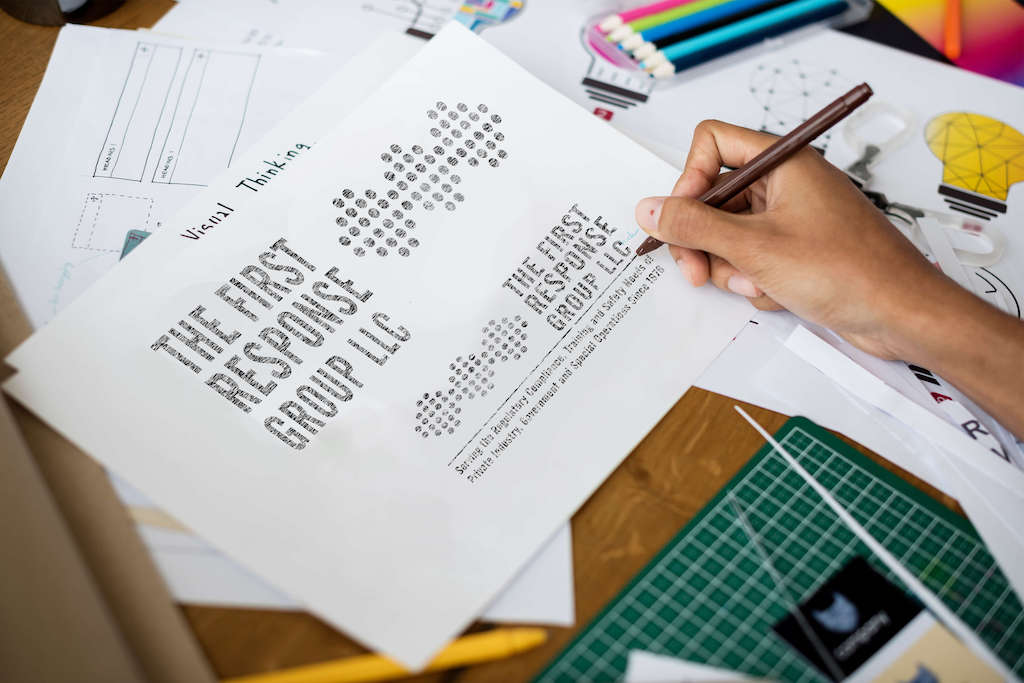 Visual Thinking.
THE FIRST
RESPONSE
GROUP LLC
THE FIRST
RESPONSE
GROUP LLC
Serving the Regulatory Compliance, Training and Safety Needs of
Private Industry, Government and Special Operations Since 1978
HEADING 1
HEADING 1
company
R